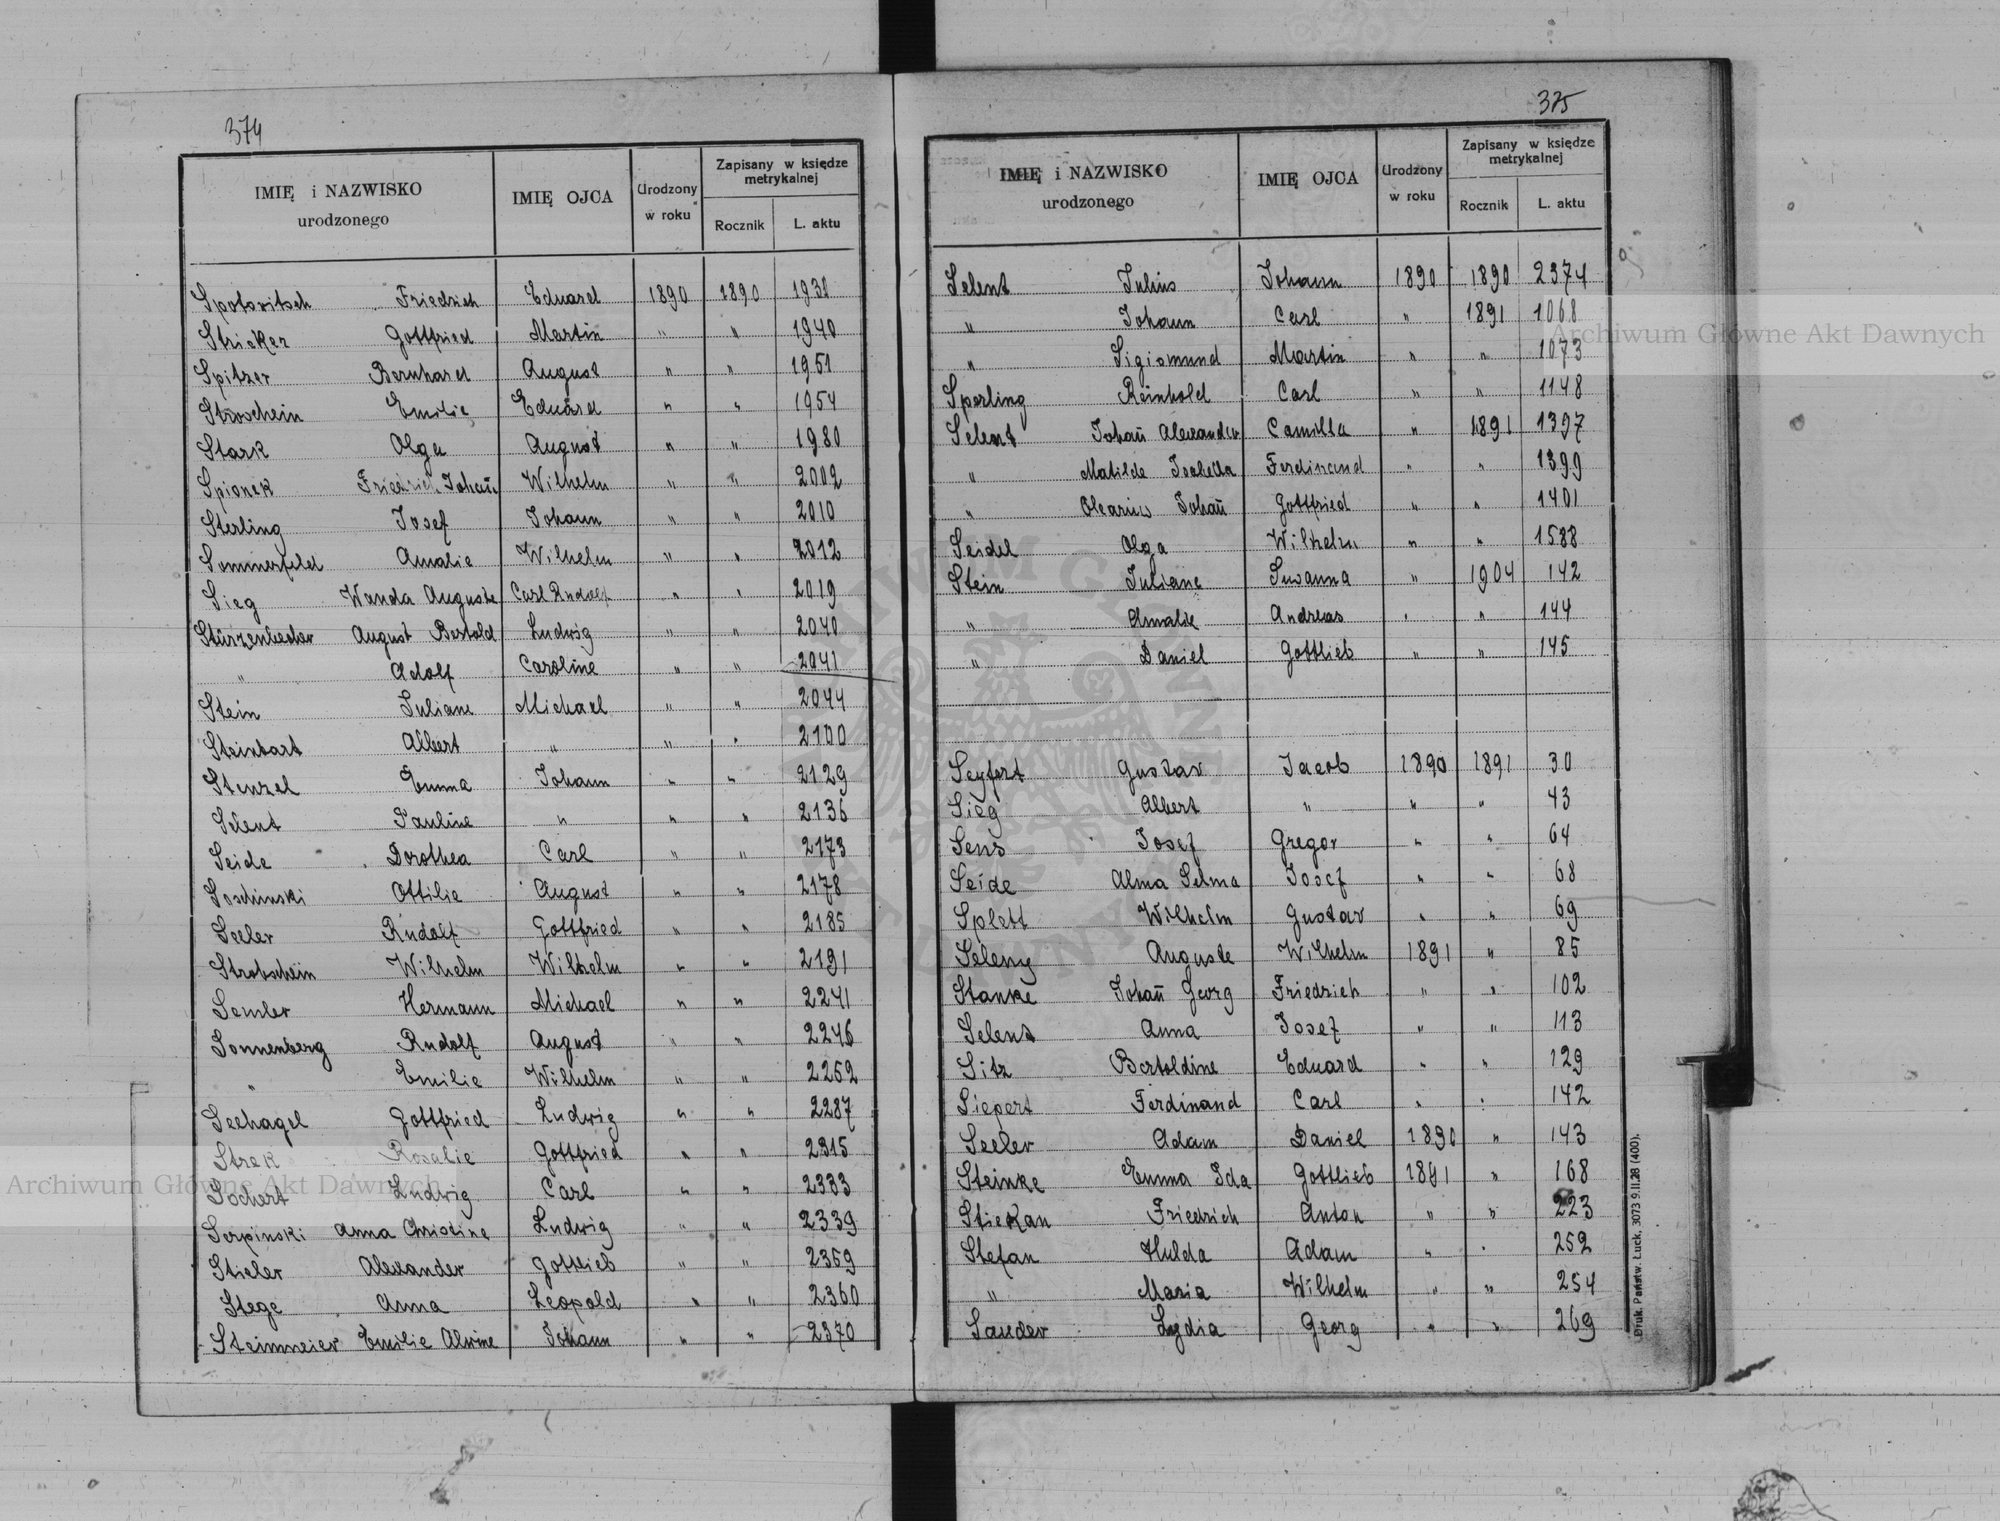 374
IMIĘ i NAZWISKO urodzonego IMIĘ OJCA Urodzony w roku Zapisany w księdze metrykalnej Rocznik L. aktu
Spotowitsch Friedrich Eduard 1890 1890 1931
Stricker Gottfried Martin " " 1940
Spitzer Bernhard August " " 1951
Stroschein Emilie Eduard " " 1954
Stark Olga August " " 1980
Spionek Friedrich Johañ Wilhelm " " 2002
Sterling Josef Johann " " 2010
Sommerfeld Amalie Wilhelm " " 2012
Sieg Wanda Auguste Carl Rudolf " " 2019
Stürzenbecher August Bertold Ludwig " " 2040
" Adolf Caroline " " 2041
Stein Juliane Michael " " 2044
Steinbart Albert " " " 2100
Stenzel Emma Johann " " 2129
Selent Pauline " " " 2136
Seide Dorothea Carl " " 2173
Soschinski Ottilie August " " 2178
Seeler Rudolf Gottfried " " 2185
Strobschein Wilhelm Wilhelm " " 2191
Semler Hermann Michael " " 2241
Sonnenberg Rudolf August " " 2246
" Emilie Wilhelm " " 2262
Seehagel Gottfried Ludwig " " 2287
Strek Rosalie Gottfried " " 2315
Sochert Ludwig Carl " " 2333
Serpinski Anna Christine Ludwig " " 2339
Stieler Alexander Gottlieb " " 2359
Stege Anna Leopold " " 2360
Steinmeier Emilie Alwine Johann " " 2370
375
IMIĘ i NAZWISKO urodzonego IMIĘ OJCA Urodzony w roku Zapisany w księdze metrykalnej Rocznik L. aktu
Selent Julius Johann 1890 1890 2374
" Johann Carl " 1891 1068
" Sigismund Martin " " 1073
Sperling Reinhold Carl " " 1148
Selent Johañ Alexander Camilla " 1891 1397
" Matilde Isabella Ferdinand " " 1399
" Olearius Johañ Gottfried " " 1401
Seidel Olga Wilhelm " " 1588
Stein Juliane Susanna " 1904 142
" Amalie Andreas " " 144
" Daniel Gottlieb " " 145
Seyfert Gustav Jacob 1890 1891 30
Sieg Albert " " " 43
Sens Josef Gregor " " 64
Seide Alma Selma Josef " " 68
Splett Wilhelm Gustav " " 69
Seleny Auguste Wilhelm 1891 " 85
Stanke Johañ Georg Friedrich " " 102
Selent Anna Josef " " 113
Sitz Bertoldine Eduard " " 129
Siepert Ferdinand Carl " " 142
Seeler Adam Daniel 1890 " 143
Steinke Emma Ida Gottlieb 1891 " 168
Stiekan Friedrich Anton " " 223
Stefan Hulda Adam " " 252
" Maria Wilhelm " " 254
Sander Lydia Georg " " 269
Druk. Państw. Łuck, 3073 9.II.28 (400).
Archiwum Główne Akt Dawnych
Archiwum Główne Akt Dawnych